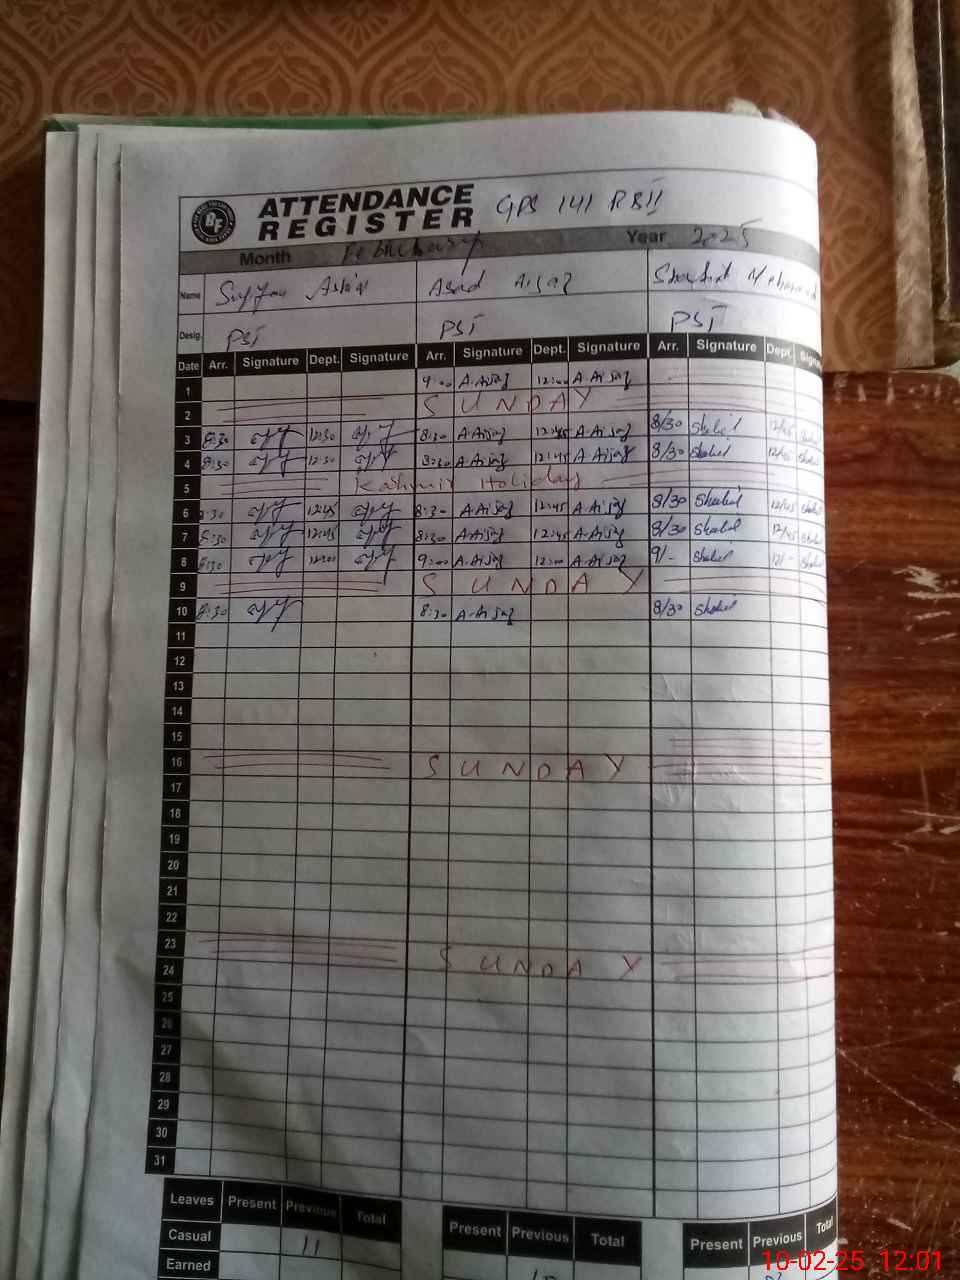 BF
ATTENDANCE
REGISTER GPS 141 RBII
Month February Year 2025
Name Asad Aijaz
Desig. PST PST PST
Date Arr. Signature Dept. Signature Arr. Signature Dept. Signature Arr. Signature Dept.
1 9:00 A.Aijaz 12:00 A.Aijaz
2 SUNDAY
3 8:30 12:30 8:30 A.Aijaz 12:45 A.Aijaz 8/30 12/45
4 8:30 12:30 8:30 A.Aijaz 12:45 A.Aijaz 8/30 12/45
5 Kashmir Holiday
6 8:30 12:45 8:30 A.Aijaz 12:45 A.Aijaz 8/30 12/45
7 8:30 12:45 8:30 A.Aijaz 12:45 A.Aijaz 8/30 12/45
8 8:30 12:00 9:00 A.Aijaz 12:00 A.Aijaz 9/- 12/-
9 SUNDAY
10 8:30 8:30 A.Aijaz 8/30
11
12
13
14
15
16 SUNDAY
17
18
19
20
21
22
23 SUNDAY
24
25
26
27
28
29
30
31
Leaves Present Previous Total Present Previous Total Present Previous Total
Casual 11
Earned
10-02-25 12:01